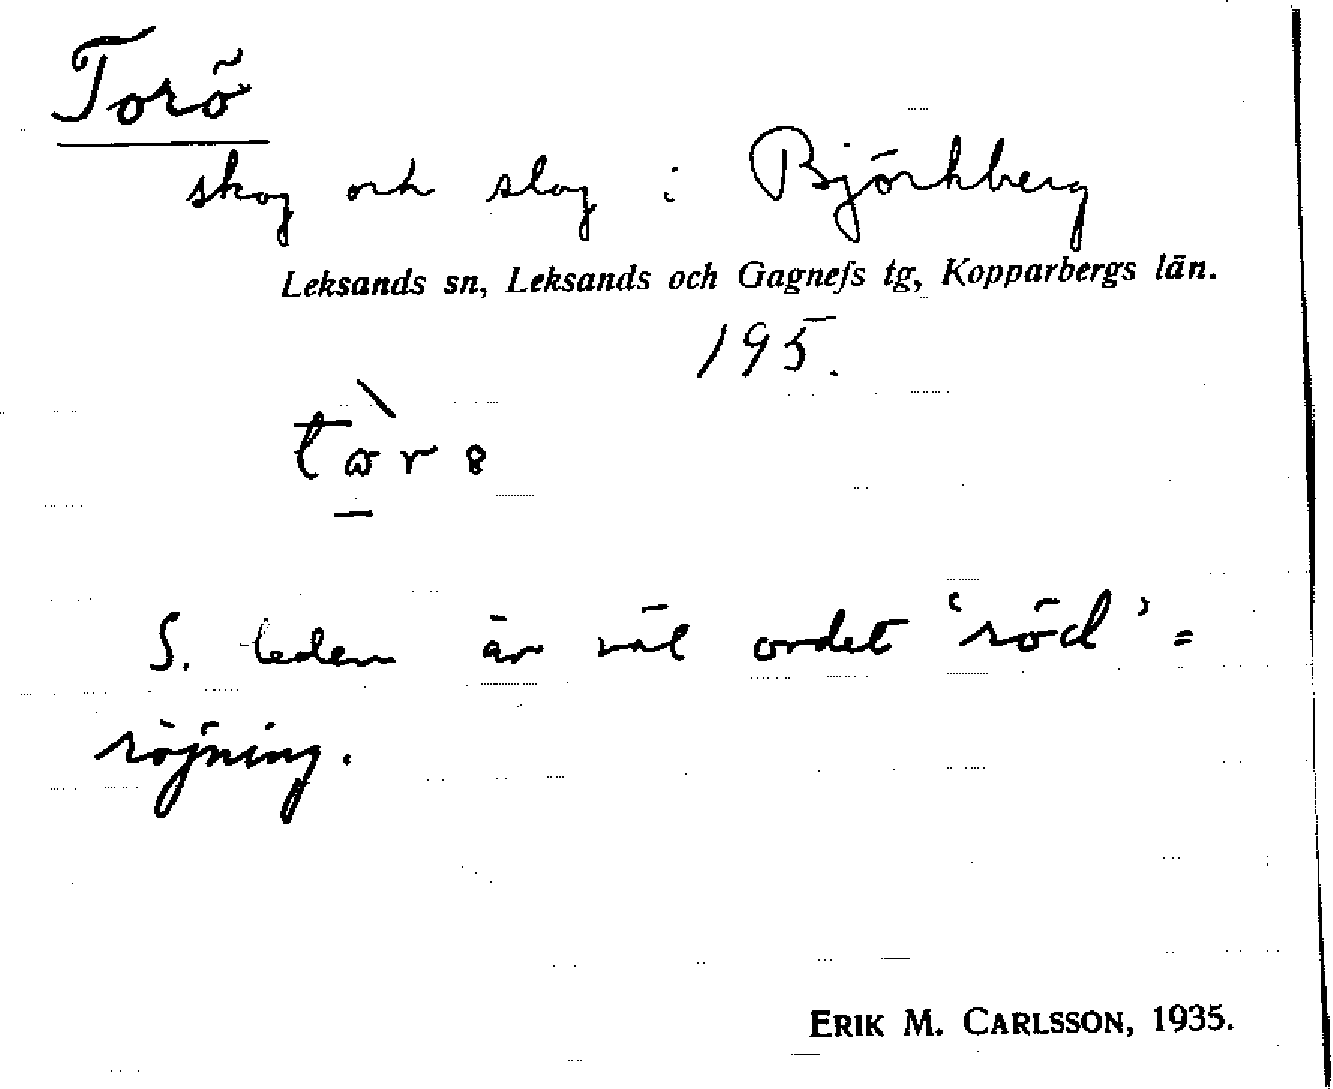 Torö
skog och slog i Björkberg
Leksands sn, Leksands och Gagnefs tg, Kopparbergs län.
195.
S. leden är väl ordet 'röd' =
röjning.
ERIK M. CARLSSON, 1935.